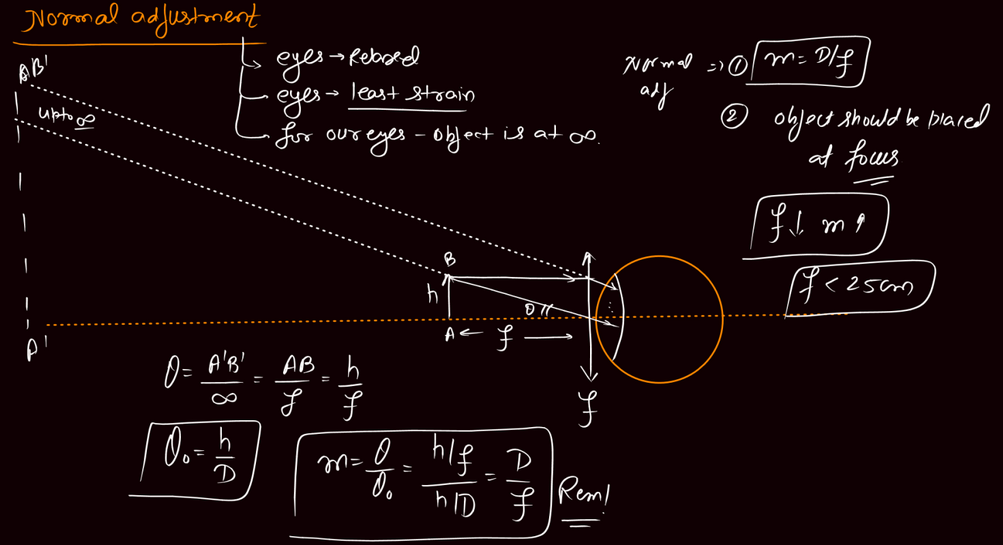 Normal adjustment
eyes → Relaxed
eyes → least strain
for our eyes - object is at ∞.
Normal adj ⇒ ① m = D/f
② object should be placed
at focus
f↓ m↑
f < 25cm
B'
upto ∞
B
A
h
θ
A ← f →
A'
f
θ = A'B'/∞ = AB/f = h/f
θ₀ = h/D
m = θ/θ₀ = (h/f)/(h/D) = D/f
Rem!